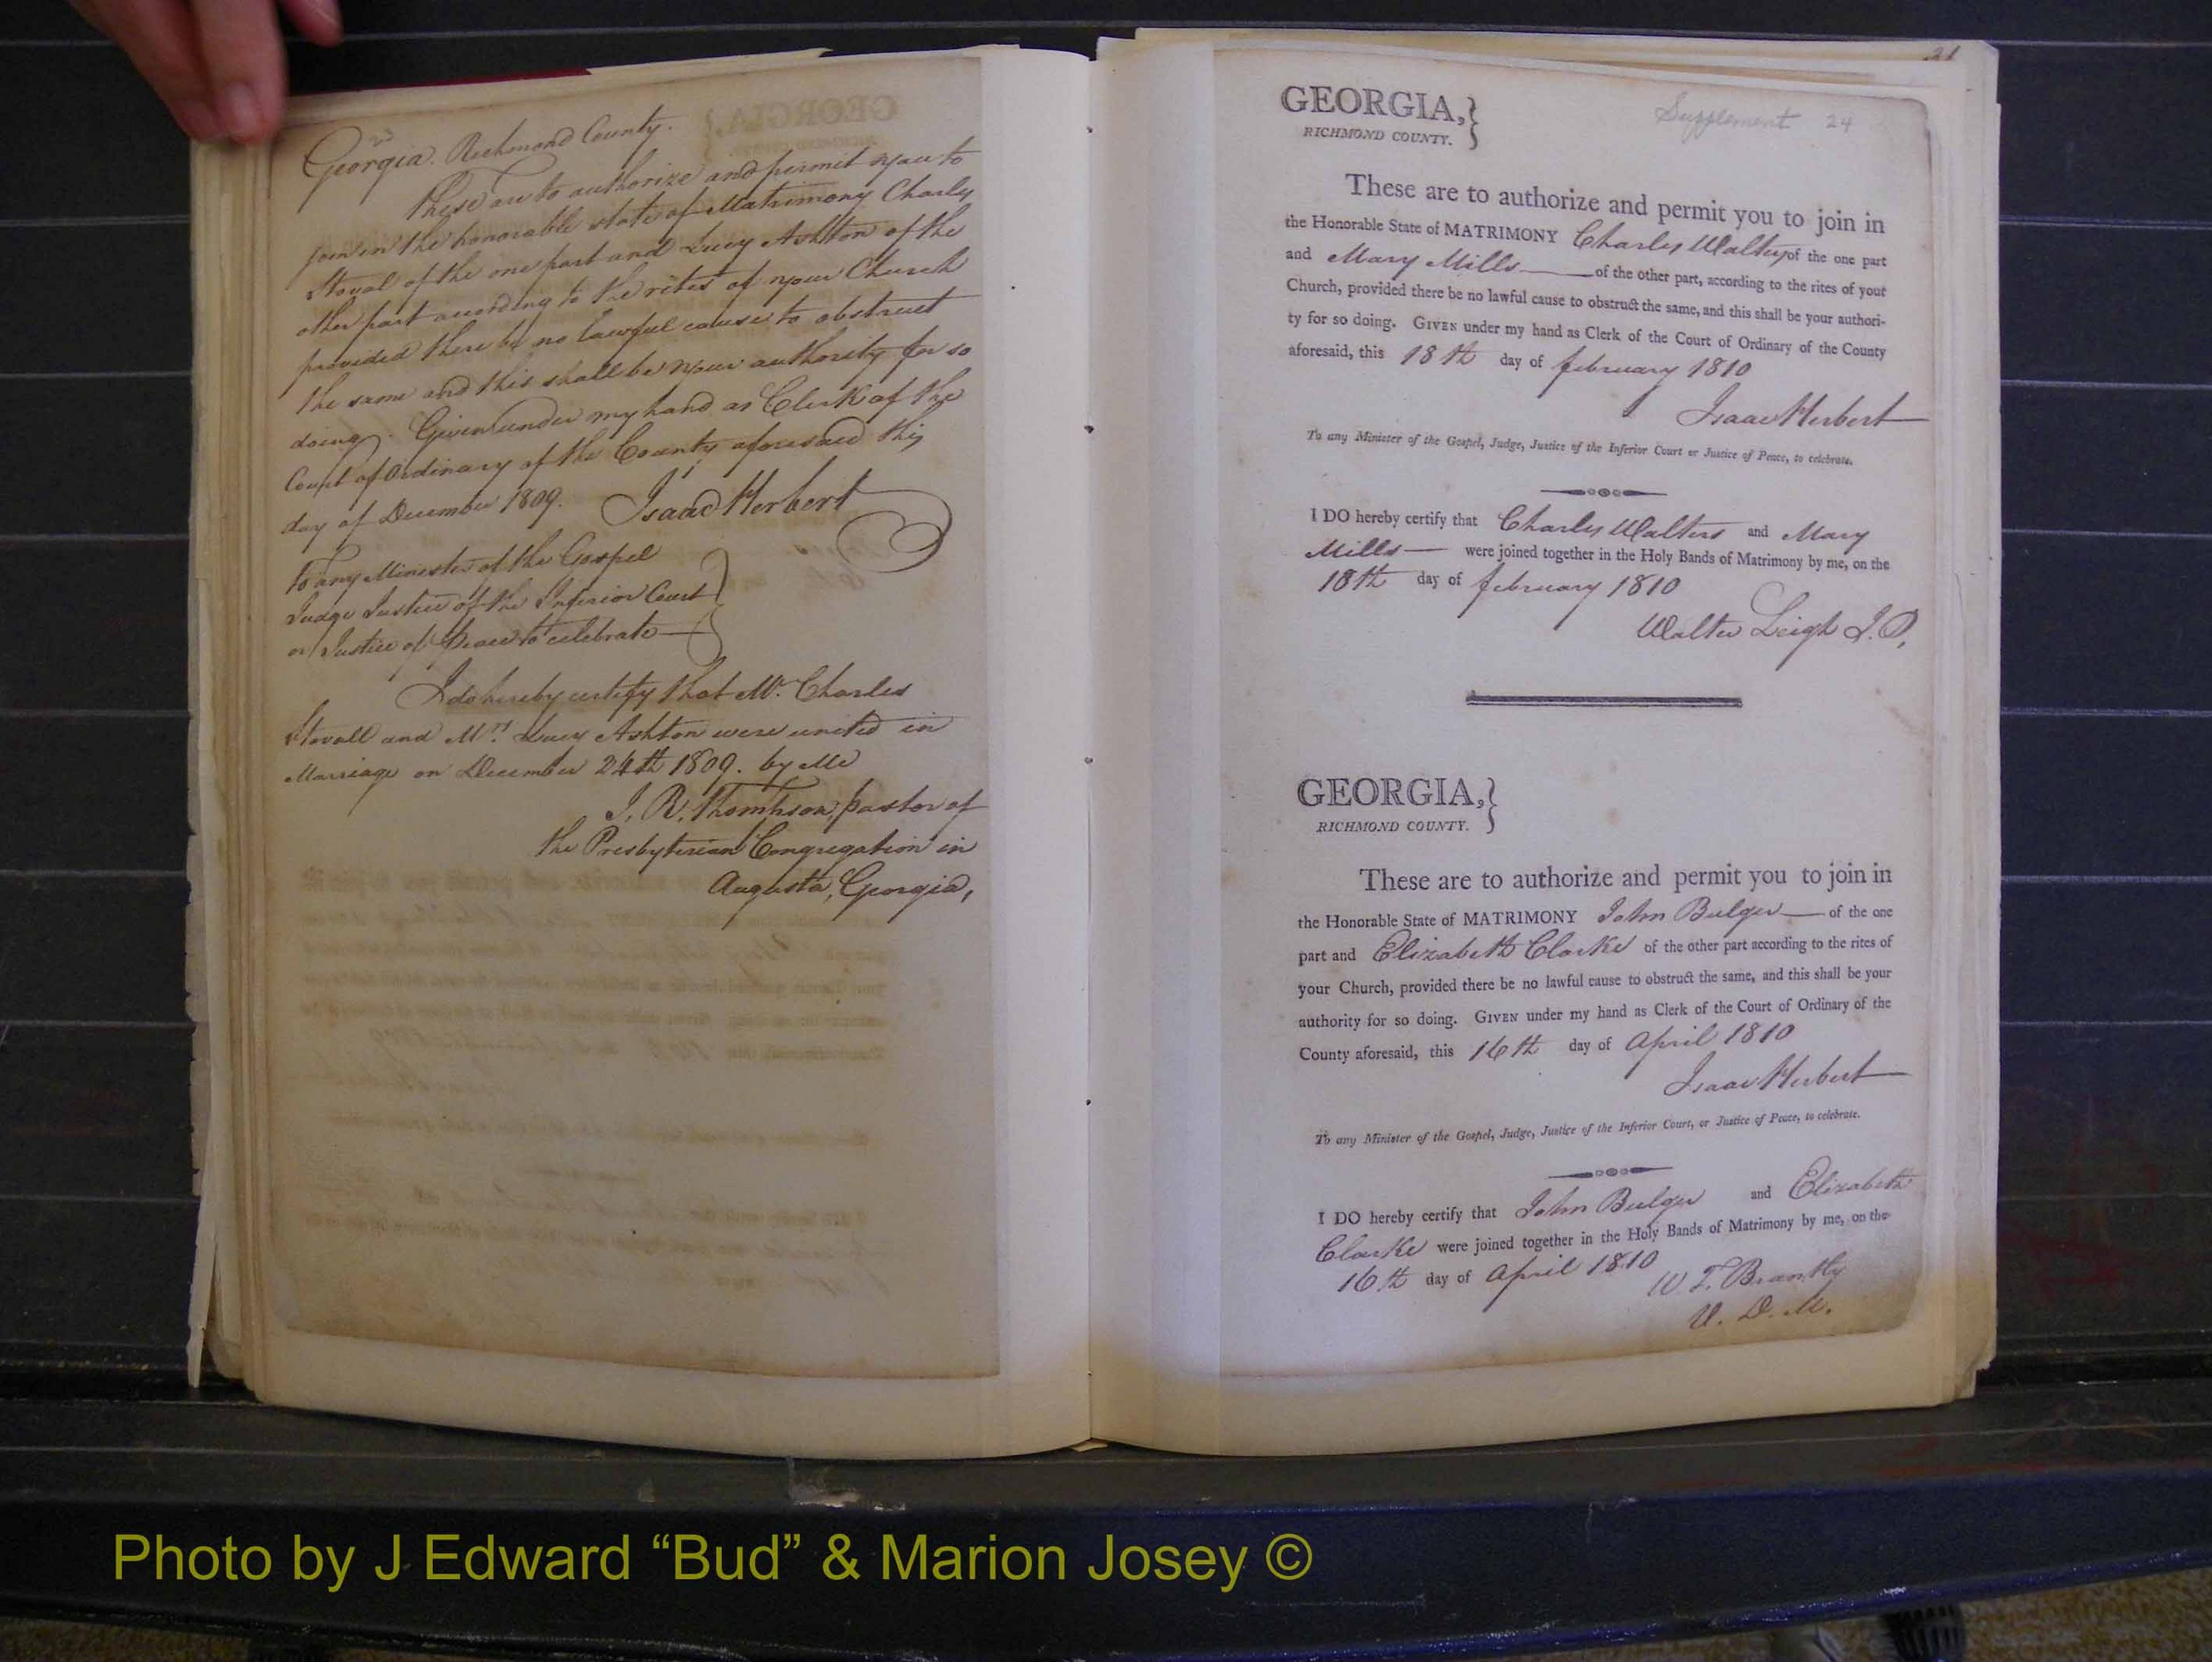 23
Georgia. Richmond County.
These are to authorize and permit you to
join in the honorable state of Matrimony Charles
Stoval of the one part and Lucy Ashton of the
other part according to the rites of your Church
provided there be no lawful cause to obstruct
the same and this shall be your authority for so
doing. Given under my hand as Clerk of the
Court of Ordinary of the County aforesaid this
day of December 1809. Isaac Herbert
To any Minister of the Gospel
Judge Justice of the Inferior Court
or Justice of Peace to celebrate
I do hereby certify that Mr. Charles
Stovall and Mrs. Lucy Ashton were united in
Marriage on December 24th 1809. by Me
J. R. Thompson, pastor of
the Presbyterian Congregation in
Augusta, Georgia,
GEORGIA,
RICHMOND COUNTY.
Supplement 24
These are to authorize and permit you to join in
the Honorable State of MATRIMONY Charles Walters of the one part
and Mary Mills of the other part, according to the rites of your
Church, provided there be no lawful cause to obstruct the same, and this shall be your authori-
ty for so doing. GIVEN under my hand as Clerk of the Court of Ordinary of the County
aforesaid, this 18th day of february 1810
Isaac Herbert
To any Minister of the Gospel, Judge, Justice of the Inferior Court or Justice of Peace, to celebrate.
I DO hereby certify that Charles Walters and Mary
Mills were joined together in the Holy Bands of Matrimony by me, on the
18th day of february 1810
Walter Leigh J.P.
GEORGIA,
RICHMOND COUNTY.
These are to authorize and permit you to join in
the Honorable State of MATRIMONY John Bulger of the one
part and Elizabeth Clarke of the other part according to the rites of
your Church, provided there be no lawful cause to obstruct the same, and this shall be your
authority for so doing. GIVEN under my hand as Clerk of the Court of Ordinary of the
County aforesaid, this 16th day of April 1810
Isaac Herbert
To any Minister of the Gospel, Judge, Justice of the Inferior Court, or Justice of Peace, to celebrate.
I DO hereby certify that John Bulger and Elizabeth
Clarke were joined together in the Holy Bands of Matrimony by me, on the
16th day of April 1810
W. T. Brantly
V. D. M.
Photo by J Edward “Bud” & Marion Josey ©